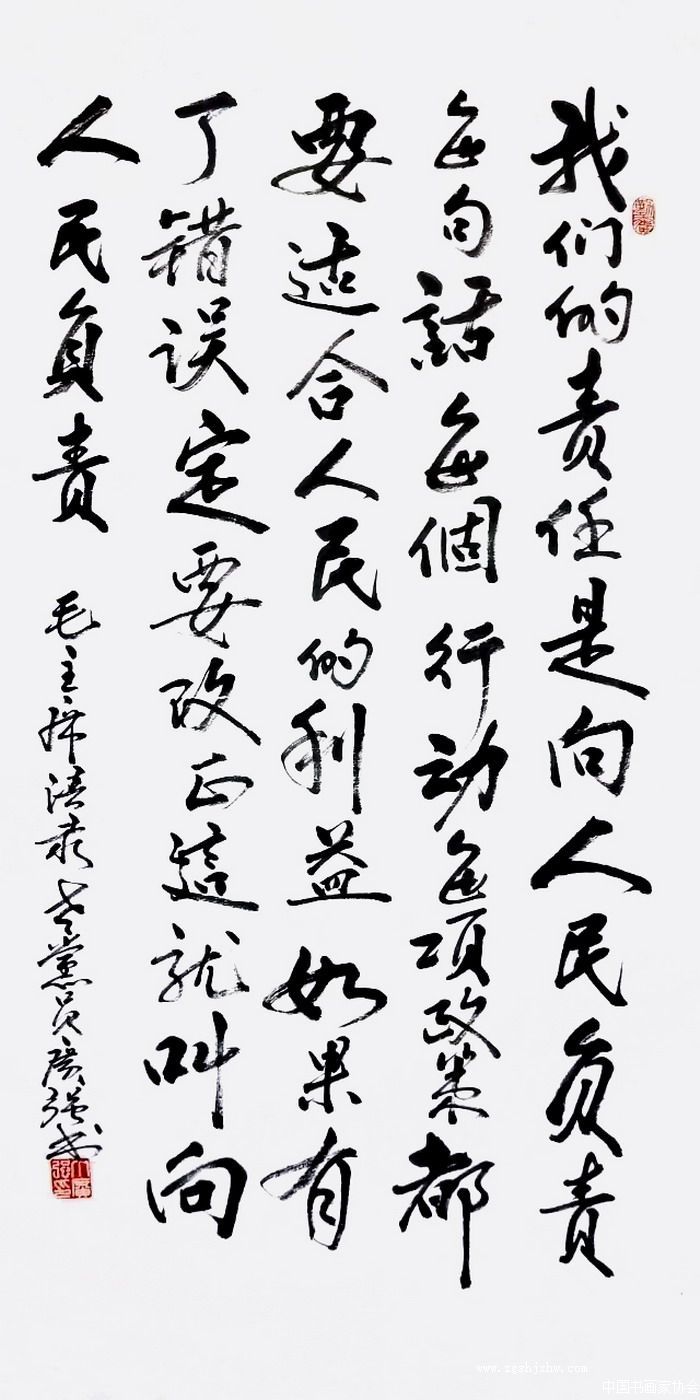 我们的责任是向人民负责
每句話每個行动每项政策都
要适合人民的利益如果有
了错误定要改正這就叫向
人民负责
毛主席语录老党员广强书
www.zgshjxhw.com
中国书画家协会